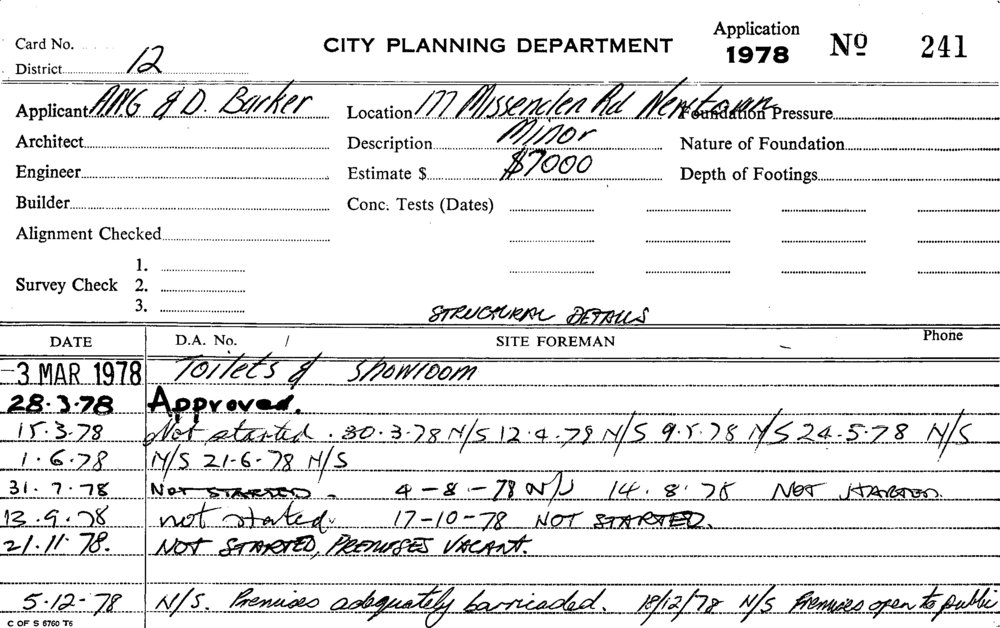 Card No.
District 12
CITY PLANNING DEPARTMENT
Application
1978 No 241
Applicant AMG & D. Barker
Location 177 Missenden Rd Newtown
Foundation Pressure
Architect
Description Minor
Nature of Foundation
Engineer
Estimate $ $7000
Depth of Footings
Builder
Conc. Tests (Dates)
Alignment Checked
Survey Check 1.
2.
3.
STRUCTURAL DETAILS
DATE D.A. No. / SITE FOREMAN Phone
-3 MAR 1978 Toilets & showroom
28.3.78 Approved.
15.3.78 Not started. 30.3.78 N/S 12.4.78 N/S 9.5.78 N/S 24.5.78 N/S
1.6.78 N/S 21-6-78 N/S
31.7.78 NOT STARTED - 4-8-78 N/S 14.8.78 NOT STARTED.
13.9.78 not started. 17-10-78 NOT STARTED.
21.11.78. NOT STARTED, PREMISES VACANT.
5-12-78 N/S. Premises adequately barricaded. 18/12/78 N/S Premises open to public
C OF S 6760 T6